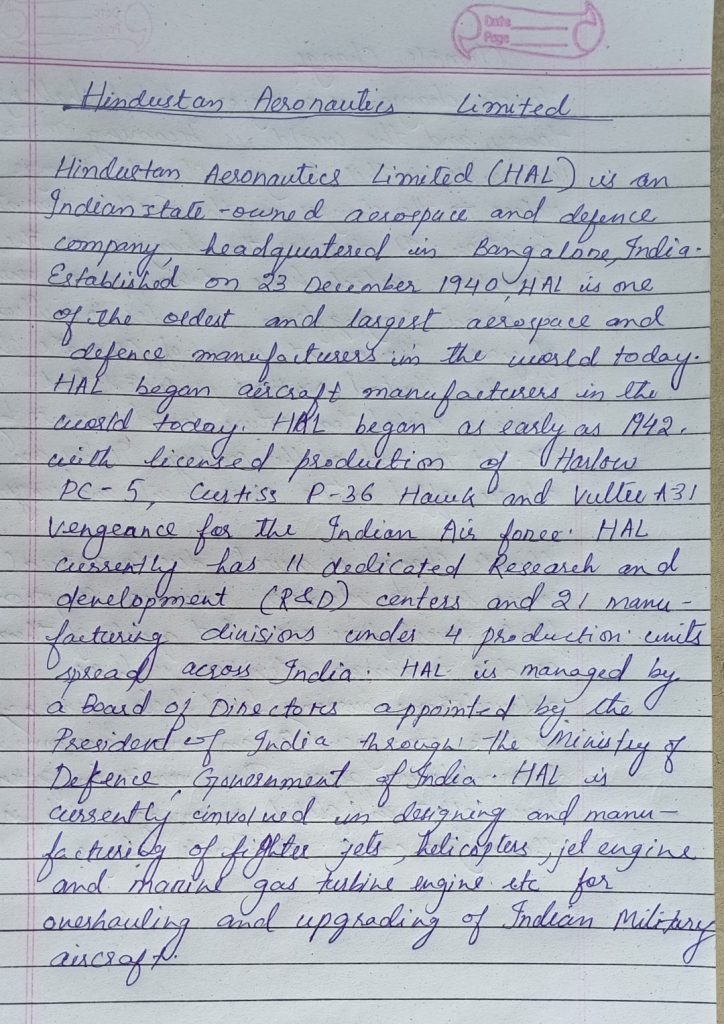 Date
Page
Hindustan Aeronautics Limited
Hindustan Aeronautics Limited (HAL) is an
Indian state-owned aerospace and defence
company, headquatered in Bangalore, India.
Established on 23 December 1940, HAL is one
of the oldest and largest aerospace and
defence manufacturers in the world today.
HAL began aircraft manufacturers in the
world today. HAL began as early as 1942.
with licensed production of Harlow
PC-5, Curtiss P-36 Hawk and Vultee A31
Vengeance for the Indian Air force. HAL
currently has 11 dedicated Research and
development (R&D) centers and 21 manu-
facturing divisions under 4 production units
spread across India. HAL is managed by
a Board of Directors appointed by the
President of India through the Ministry of
Defence, Government of India. HAL is
currently involved in designing and manu-
facturing of fighter jets, helicopters, jet engine
and marine gas turbine engine etc for
overhauling and upgrading of Indian Military
aircraft.